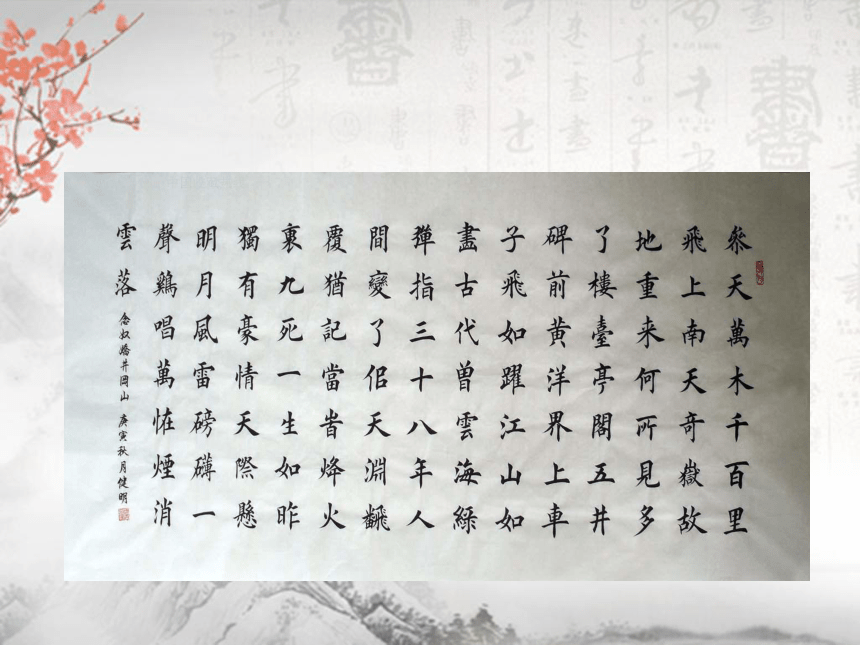 參天萬木千百里
飛上南天奇嶽故
地重来何所見多
了樓臺亭閣五井
碑前黄洋界上車
子飛如躍江山如
畫古代曽雲海綠
彈指三十八年人
間變了佀天淵飜
覆猶記當旹烽火
裏九死一生如昨
獨有豪情天際懸
明月風雷磅礴一
聲鷄唱萬恠煙消
雲落
念奴嬌井岡山 庚寅秋月健明